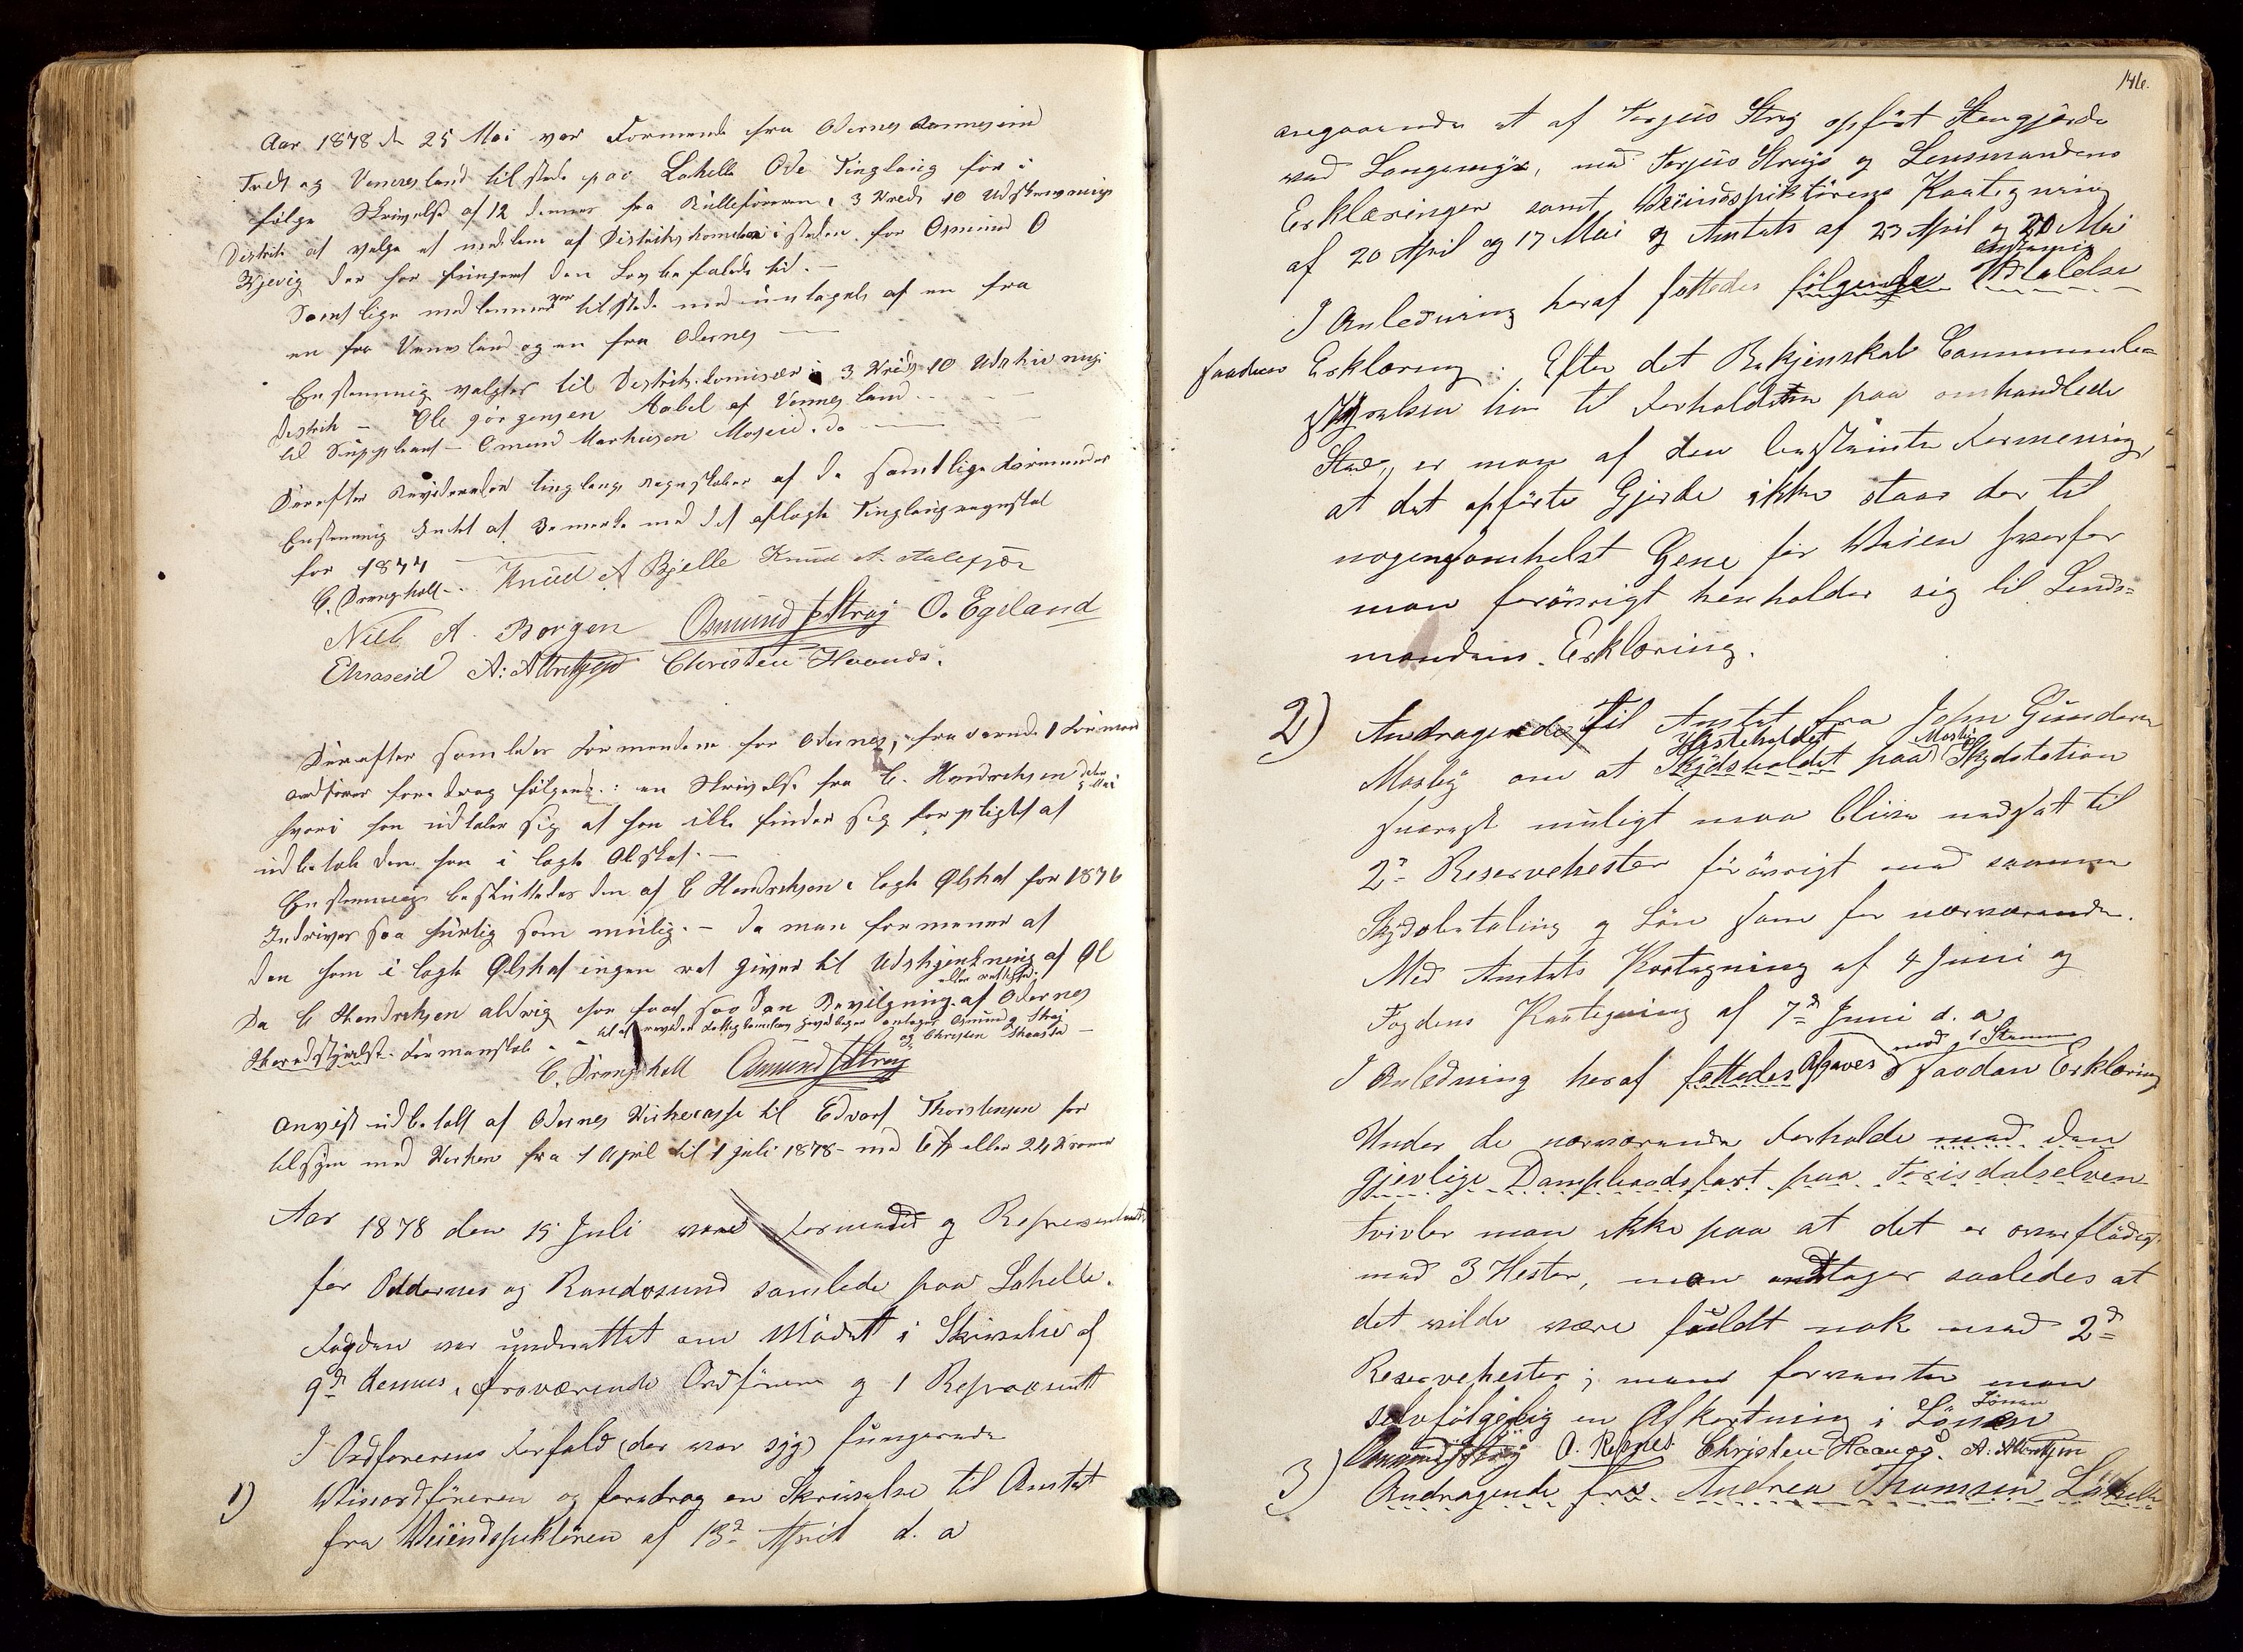 Aar 1878 den 25 Mai var Formend fra Odernes
Tvedt og Vennesland tilstede paa Lahelle Ode Tinglaug for i
følge Skrivelse af 12 dennes fra Rulleføreren i 3 Kreds 10 Udskrivnings
Distrikt at velge et medlem af Distriktskomision i steden for Osmund O
Kjevig der har fungeret den Lovbefalede tid. —
Samtlige medlemmer var tilstede med untagelse af en fra
en fra Vennesland og en fra Odernes —
Enstemmig valgtes til Distriktskomisær i 3 Kreds 10 Udskrivnings
Distrikt — Ole Jørgensen Aabel af Vennesland
til Suppleant — Omund Markusen Moseid. do —
Derefter Revideredes tinglaugs regnskaber af de samtlige Formender
Enstemmig Intet at Bemerke med det aflagte Tinglaugregnskab
for 1877
C. Drangsholt. Knud A Bjelle Knud A. Aalefjær
Niels A. Borgen Osmund G Straÿ O. Egeland
A: Albretsen Christen Haanes.
Derefter samledes Formendene for Odernes, fraværende 1 Formand
ordfører foredrog følgende: en Skrivelse fra C. Hendriksen Mai
hvori han udtaler sig at han ikke finder sig forpligtet at
udbetale den ham i lagte Ølskat. —
Enstemmig besluttedes den af C Hendriksen i lagte Ølskat for 1876
Indrives saa hurtig som mulig. — da man formener at
den ham i lagte Ølskat ingen ret giver til Udskjenkning af Øl
eller rettighed
Da C Hendriksen aldrig har faaet saadan Bevilgning af Odernes
Heredstyrelse. Formanskab
til at revidere Fattigkomisions hovedbøger antages Osmund G Straÿ
og Christen Haanes —
C. Drangsholt Osmund G Straÿ
Anvist udbetalt af Odernes Kirkecasse til Edvart Thorstensen for
tilsyn med Kirken fra 1 April til 1 juli 1878 — med 6 Sp eller 24 Kroner
Aar 1878 den 15 Juli vare Formænd og Repræsentanter
for Oddernes og Randøsund samlede paa Lahelle.
Fogden var underrettet om Mødet i Skrivelse af
9d dennes. fraværende Ordføreren og 1 Repræsentt
I Ordførerens Forfald (der var syg) fungerede
1) Viseordføreren og foredrog en Skrivelse til Amtet
fra Veiindspektøren af 13d April d. a
146.
angaaende et af Terjus Straÿ opført Stengjerde
ved Langemyr, med Terjus Straÿs og Lensmandens
Erklæringer samt Veiindspiktørens Paategning
af 20 April og 17 Mai og Amtets af 23 April og 20 Mai
enstemig
I Anledning heraf fattedes følgende Udtalelse
saadan Erklæring: Efter det Bekjenskab Communebe=
styrelsen har til Forholdene paa omhandlede
Sted, er man af den bestemte Formening,
at det opførte Gjerde ikke staar der til
nogensomhelst Gene for Veien hvorfor
man forøvrigt henholder sig til Lends=
mandens Erklæring.
2) Andragende til Amtet fra John Gundersen
Hesteholdet Mosby
Mosby om at Skydsholdet paa Skydstation
snarest muligt maa blive nedsat til
2d Reservehester forøvrigt med samme
Skydsbetaling og Løn som for nærværende.
Med Amtets Paategning af 4 Juni og
Fogdens Paategning af 7d Juni d. a
med 1 Stemme
I Anledning heraf fattedes Afgaves saadan Erklæring
Under de nærværende Forholde med den
gjevlige Dampbaadsfart paa Torisdalselven
tvivler man ikke paa at det er overflødigt
med 3 Hester, man antager saaledes at
det vilde være fuldt nok med 2d
Reservehester; men forventer man
selvfølgelig en Afkortning i Lønen Lønen
Osmund G Straÿ O. Repnes Christen Haanes. A. Albretsen
3) Andragende fra Andrea Thomsen Lahelle